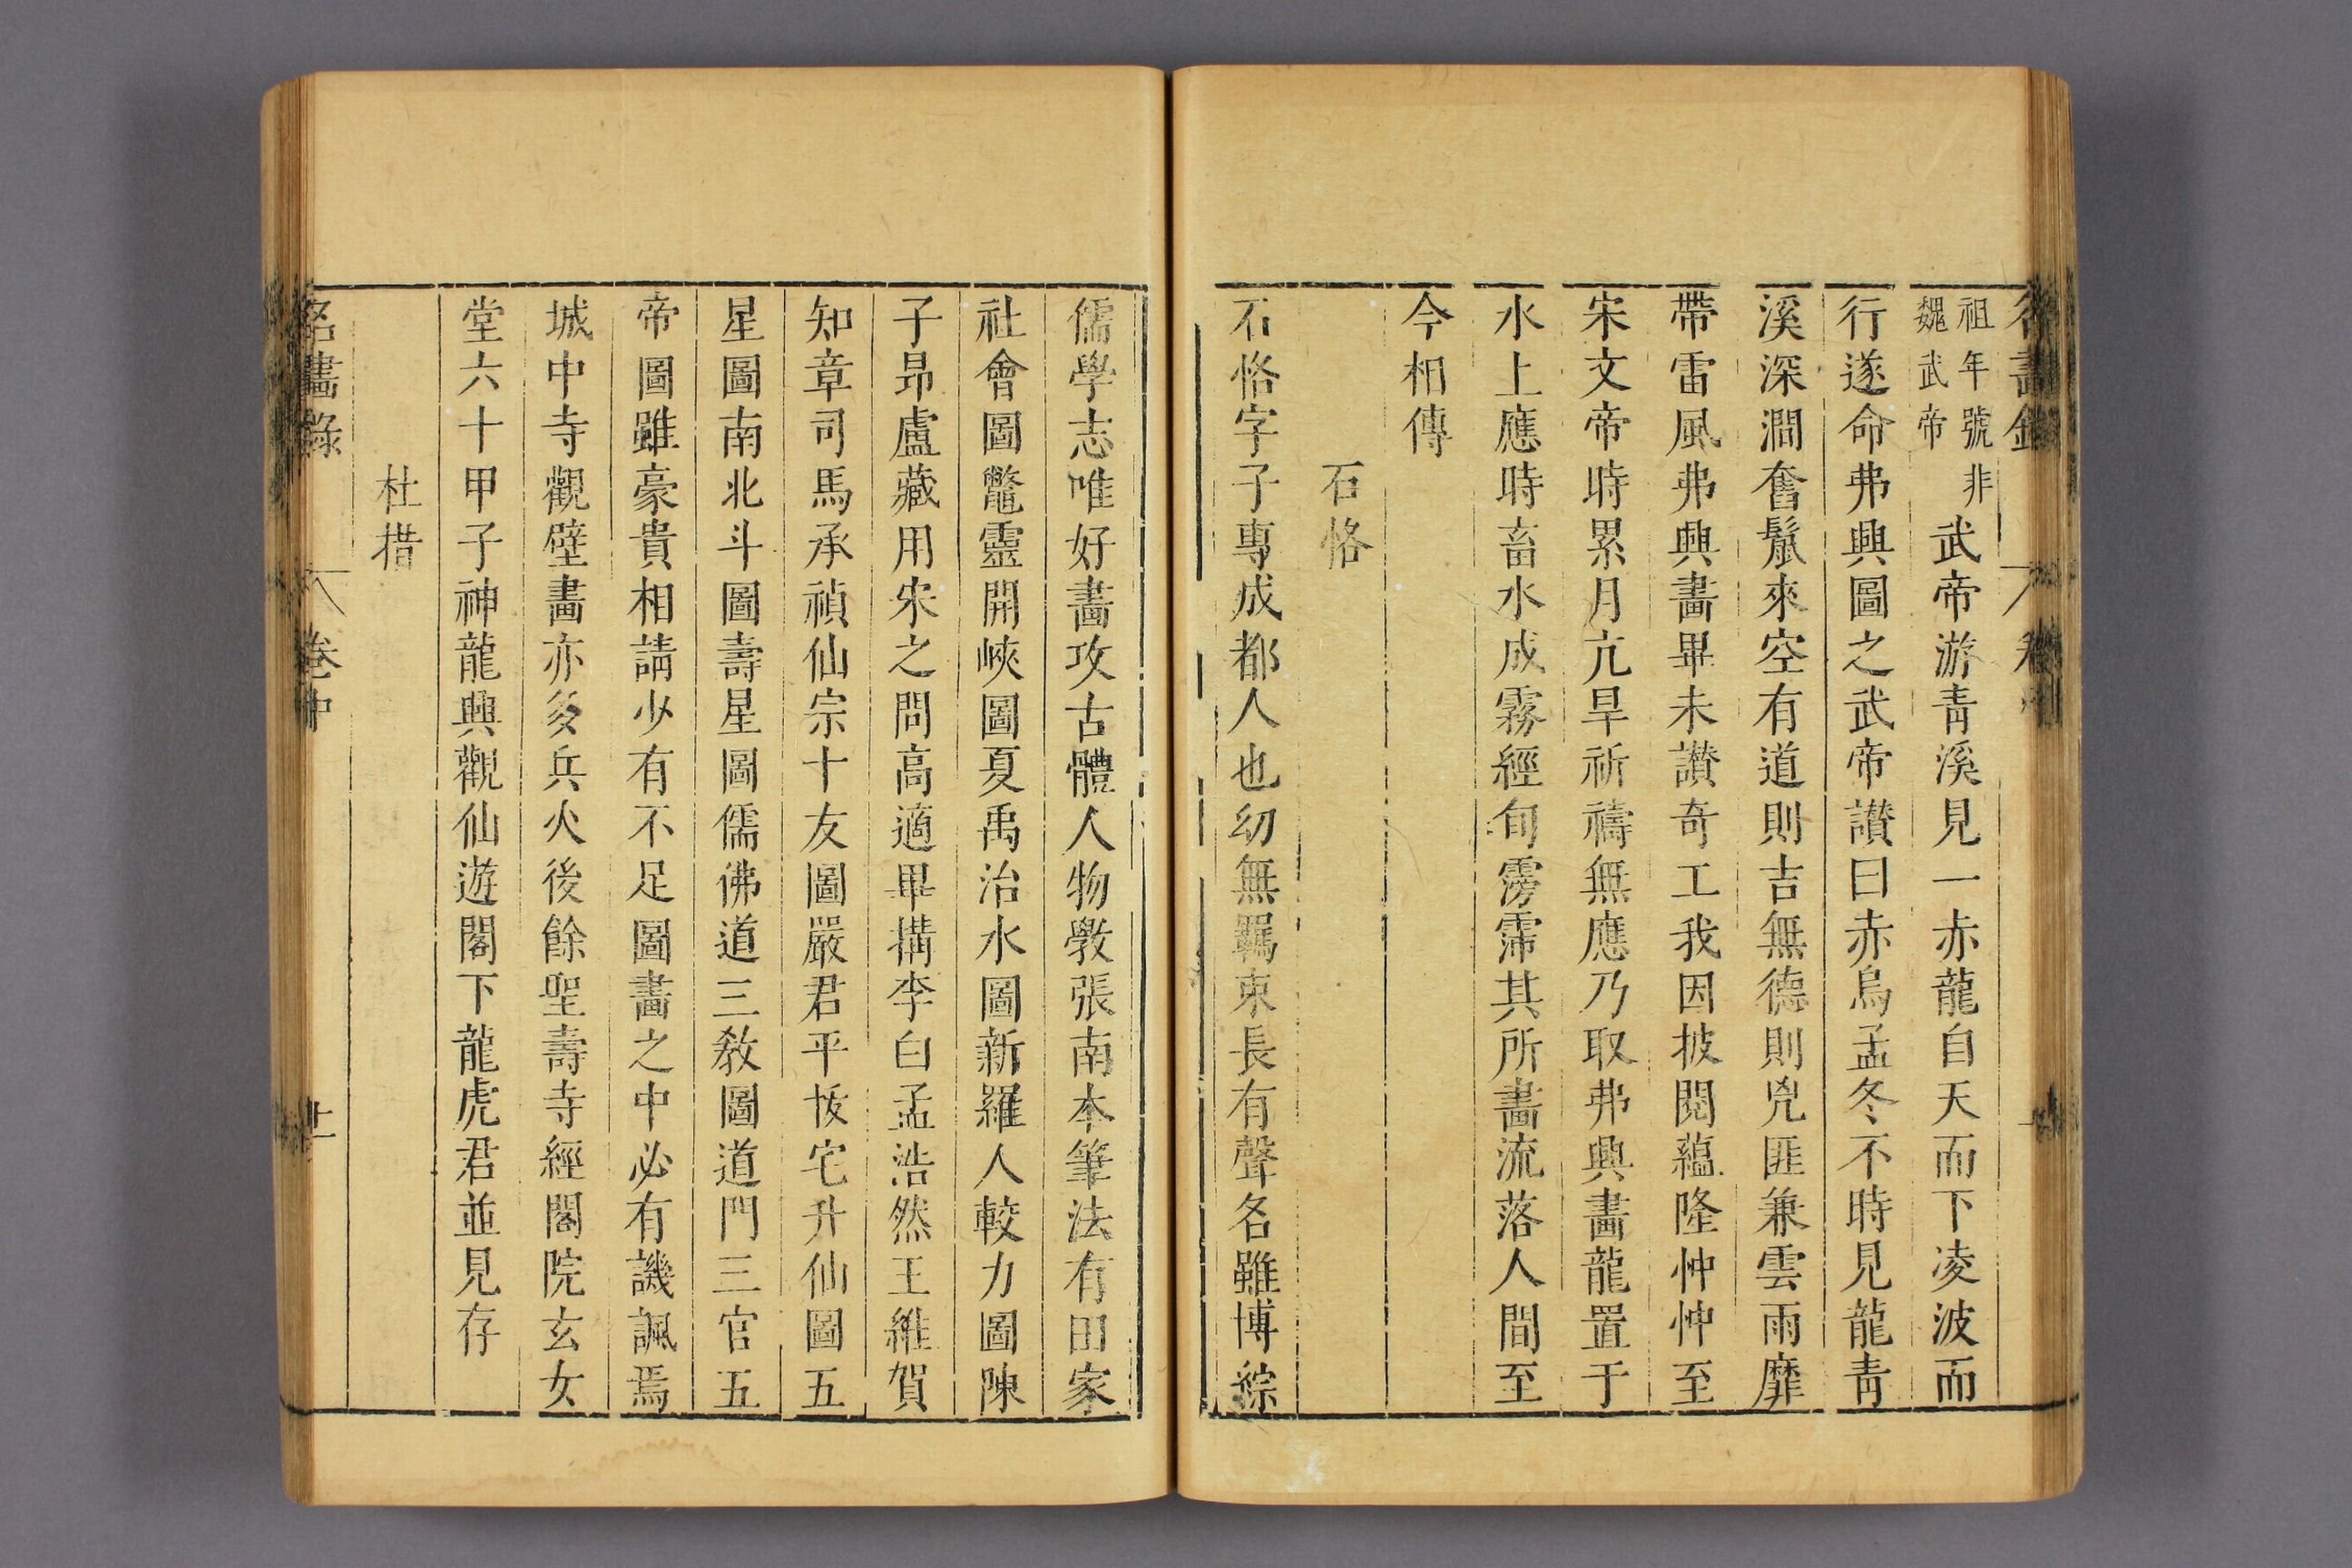 祖年號非
魏武帝
武帝游青溪見一赤龍自天而下凌波而
行遂命弗興圖之武帝讃曰赤烏孟冬不時見龍青
溪深澗奮鬣來空有道則吉無德則兇匪兼雲雨靡
帶雷風弗興畵畢未讃奇工我因披閱蘊隆忡忡至
宋文帝時累月亢旱祈禱無應乃取弗興畵龍置于
水上應時畜水成霧經旬霶霈其所畵流落人間至
今相傳
石恪
石恪字子專成都人也幼無羈束長有聲名雖博綜
儒學志唯好畵攻古體人物斆張南本筆法有田家
社會圖鼈靈開峽圖夏禹治水圖新羅人較力圖陳
子昂盧藏用宋之問高適畢搆李白孟浩然王維賀
知章司馬承禎仙宗十友圖嚴君平拔宅升仙圖五
星圖南北斗圖壽星圖儒佛道三教圖道門三官五
帝圖雖豪貴相請少有不足圖畵之中必有譏諷焉
城中寺觀壁畵亦多兵火後餘聖壽寺經閣院玄女
堂六十甲子神龍興觀仙遊閣下龍虎君並見存
杜措
名畵錄 卷中